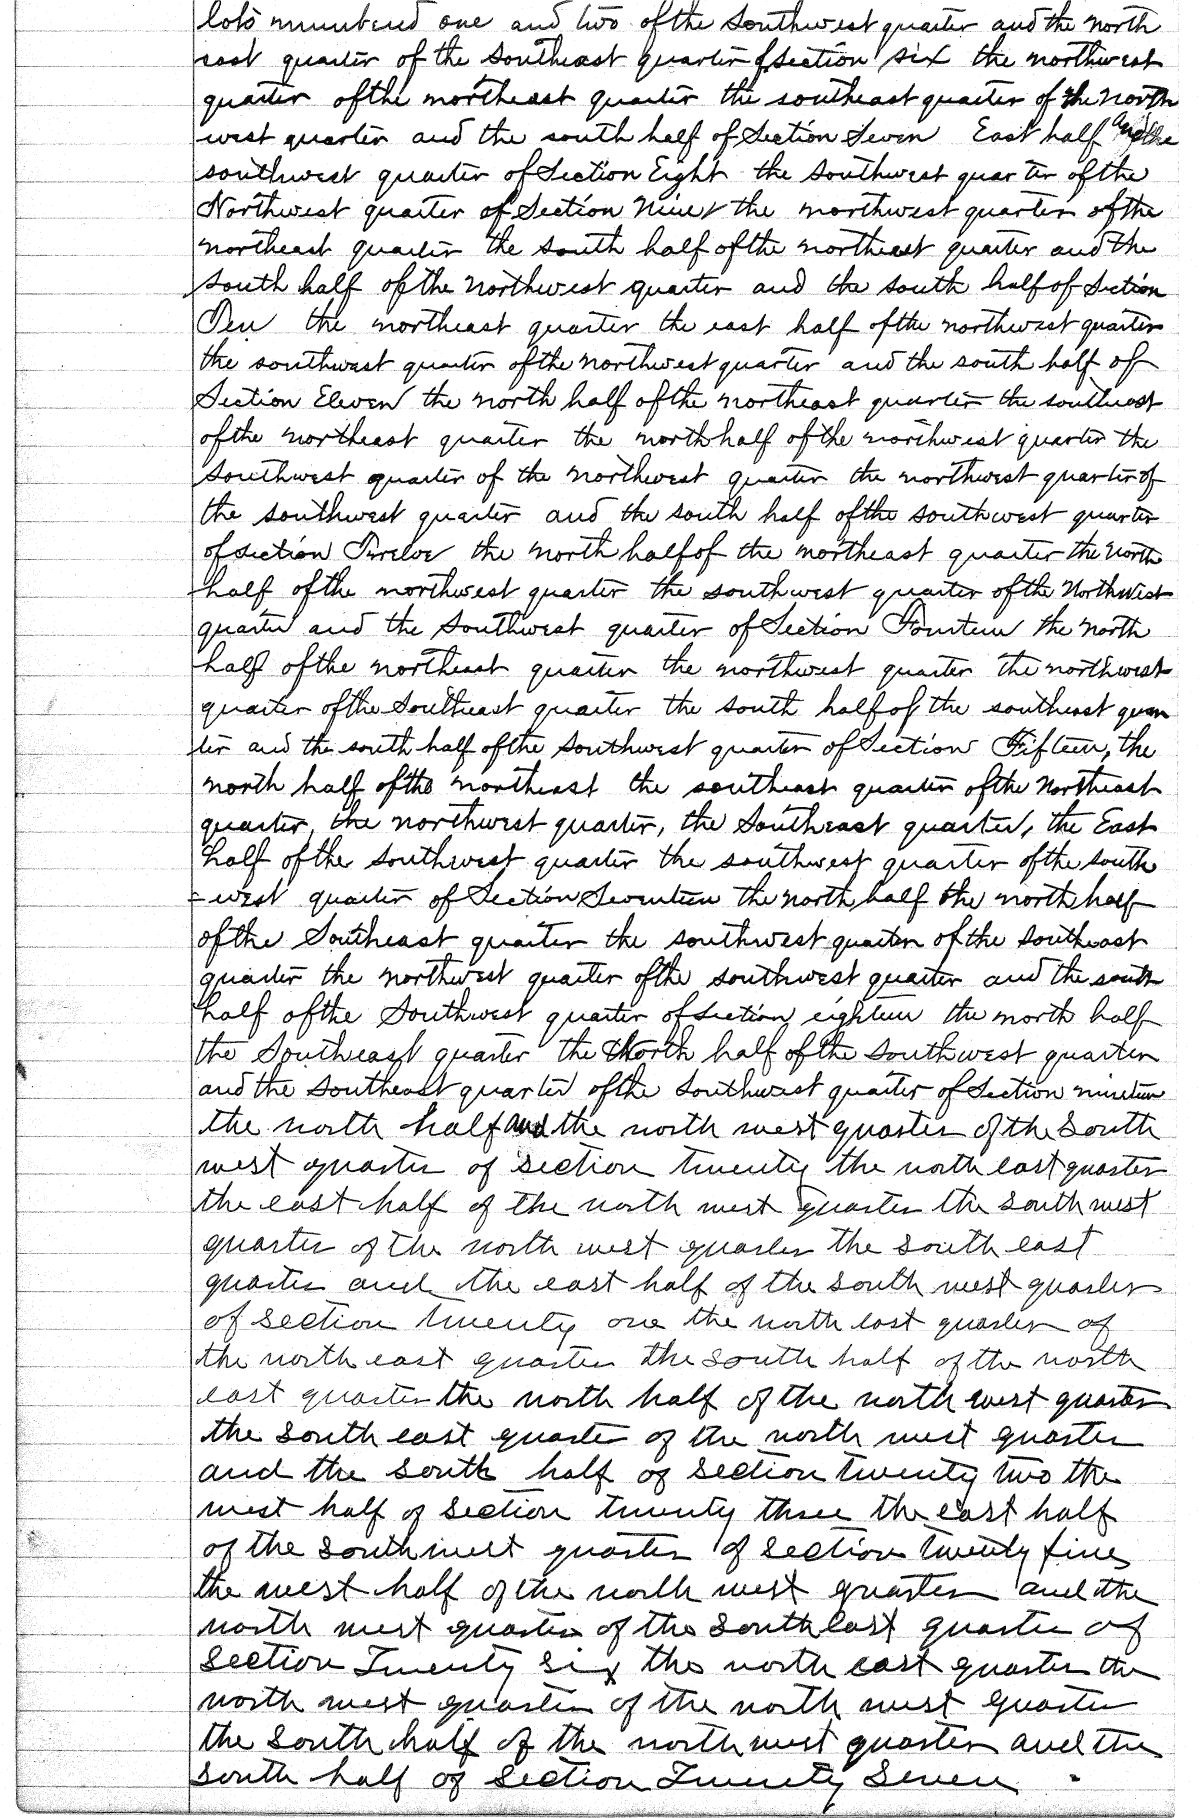 lots numbered one and two of the Southwest quarter and the north
east quarter of the Southeast quarter of Section six the northwest
quarter of the northeast quarter the southeast quarter of the North
west quarter and the south half of Section Seven East half and the
southwest quarter of Section Eight the Southwest quarter of the
Northwest quarter of Section Nine the northwest quarter of the
northeast quarter the south half of the northeast quarter and the
south half of the Northwest quarter and the south half of Section
Ten the northeast quarter the east half of the northwest quarter
the southwest quarter of the northwest quarter and the south half of
Section Eleven the north half of the northeast quarter the southeast
of the northeast quarter the north half of the northwest quarter the
Southwest quarter of the northwest quarter the northwest quarter of
the southwest quarter and the south half of the southwest quarter
of section Twelve the north half of the northeast quarter the north
half of the northwest quarter the southwest quarter of the Northwest
quarter and the Southwest quarter of Section Fourteen the north
half of the northeast quarter the northwest quarter the northwest
quarter of the Southeast quarter the south half of the southeast quar
ter and the south half of the Southwest quarter of Section Fifteen, the
north half of the northeast the southeast quarter of the Northeast
quarter, the northwest quarter, the Southeast quarter, the East
half of the southwest quarter the southwest quarter of the south
=west quarter of Section Seventeen the north half the north half
of the Southeast quarter the southwest quarter of the southeast
quarter the northwest quarter of the southwest quarter and the south
half of the Southwest quarter of section eighteen the north half
the Southeast quarter the North half of the Southwest quarter
and the Southeast quarter of the Southwest quarter of Section nineteen
the north half and the north west quarter of the South
west quarter of section twenty the north east quarter
the east half of the north west quarter the south west
quarter of the north west quarter the south east
quarter and the east half of the south west quarter
of section twenty one the north east quarter of
the north east quarter the south half of the north
east quarter the north half of the north west quarter
the south east quarter of the north west quarter
and the south half of section twenty two the
west half of section twenty three the east half
of the southwest quarter of section twenty five
the west half of the north west quarter and the
north west quarter of the south east quarter of
section Twenty six the north east quarter the
north west quarter of the north west quarter
the south half of the north west quarter and the
south half of section Twenty Seven